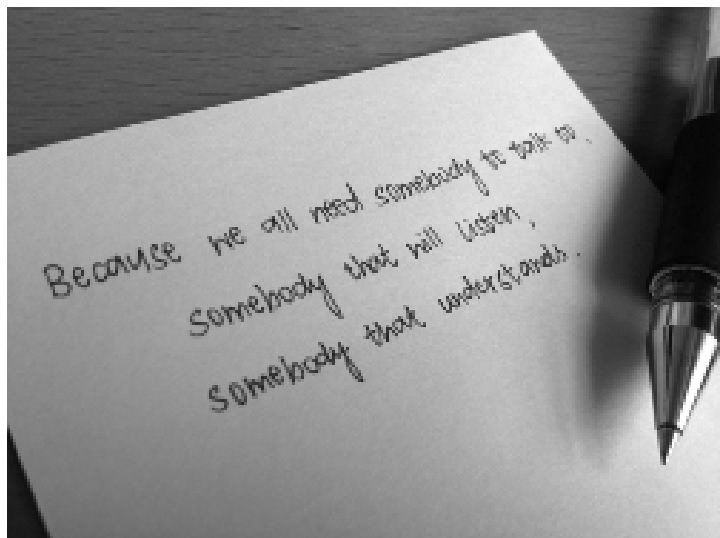 Because we all need somebody to talk to,
somebody that will listen,
somebody that understands.